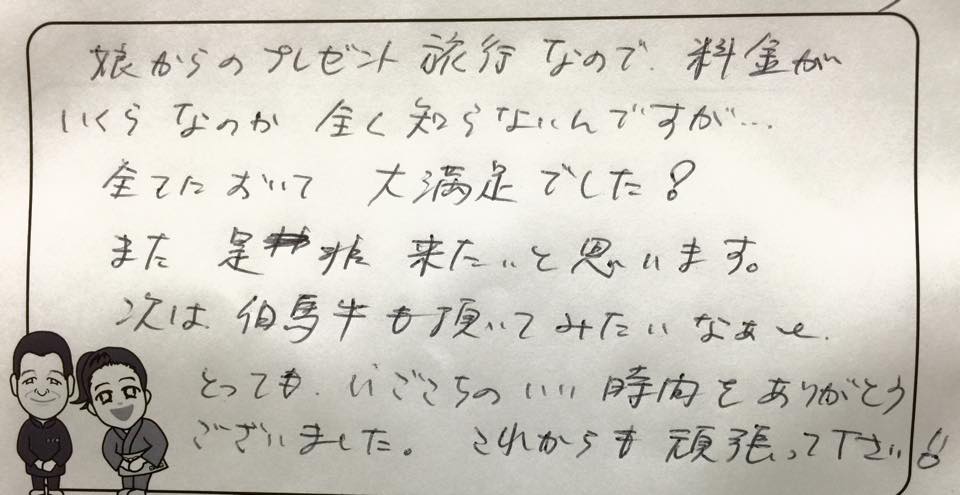 娘からのプレゼント旅行なので、料金が
いくらなのか全く知らないんですが…
全てにおいて大満足でした!
また是非来たいと思います。
次は、但馬牛も頂いてみたいなぁと。
とっても、いごこちのいい時間をありがとう
ございました。これからも頑張って下さい!!